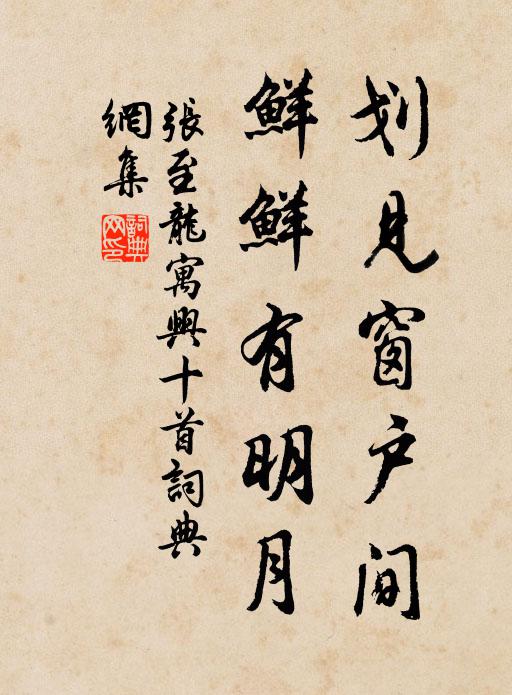 划见窗户间
鲜鲜有明月
張至龍寓興十首詞典
網集
詞典網印